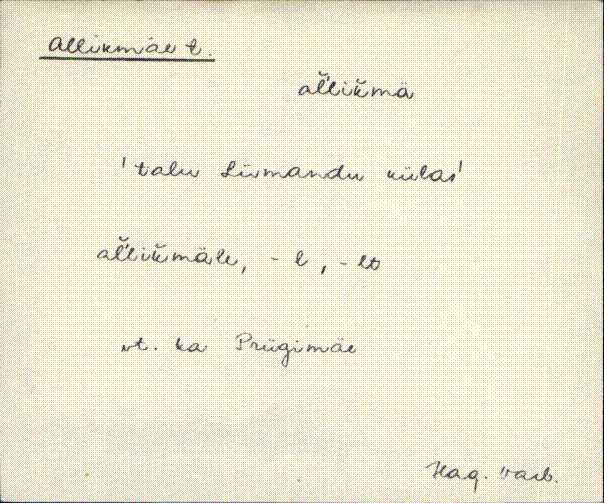 Allikmäe t.
al̆likmä
'talu Liimandu külas'
al̆likmäle, -l, -lt
vt. ka Prügimäe
Hag. Varb.